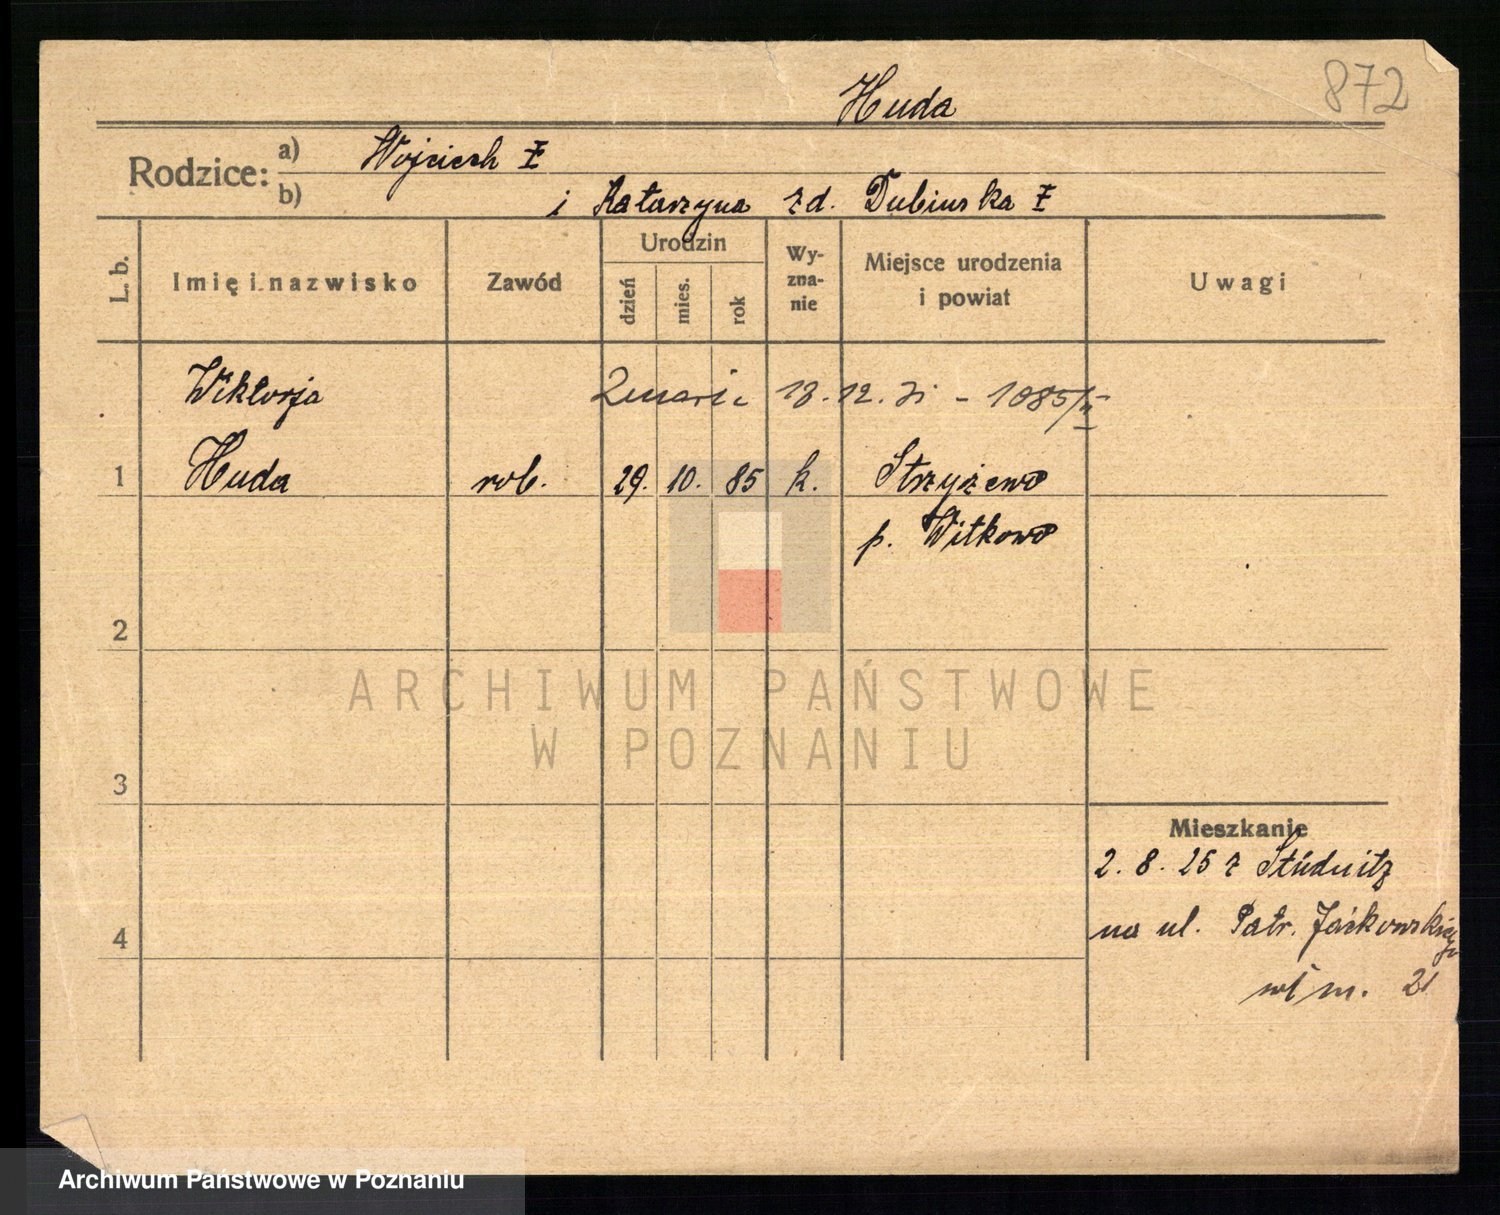 872
Huda
Rodzice: a) Wojciech
b) i Katarzyna zd. Dubinska
L. b. Imię i nazwisko Zawód Urodzin dzień mies. rok Wy-zna-nie Miejsce urodzenia i powiat Uwagi
Wiktorja 12. - 1085/II
1 Huda rob. 29. 10. 85 k. Strzyżewo
p. Witkowo
2
3
Mieszkanie
2. 8. 25 z Stüdnitz
4 na ul. Patr. Jackowskiego
m. 21
ARCHIWUM PAŃSTWOWE
W POZNANIU
Archiwum Państwowe w Poznaniu